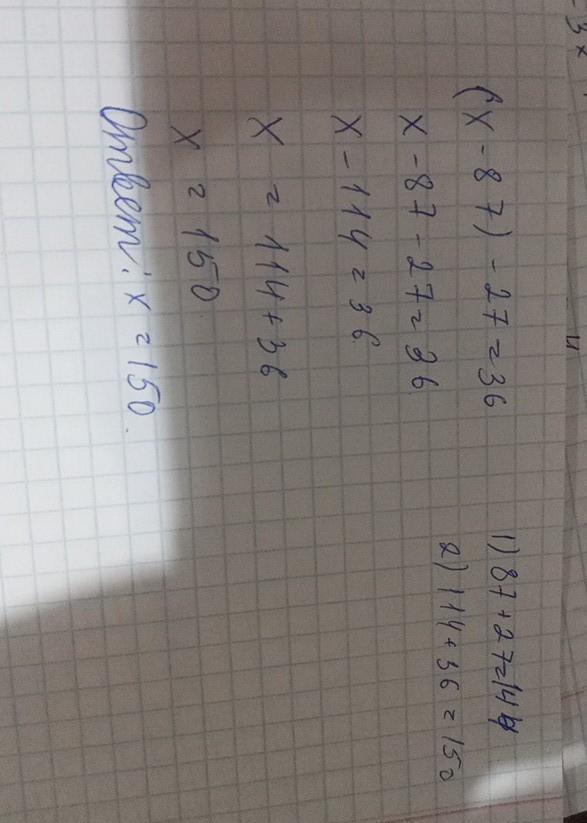 (x - 87) - 27 = 36
x - 87 - 27 = 36
x - 114 = 36
x = 114 + 36
x = 150
Ответ: x = 150.
1) 87 + 27 = 144
2) 114 + 36 = 150